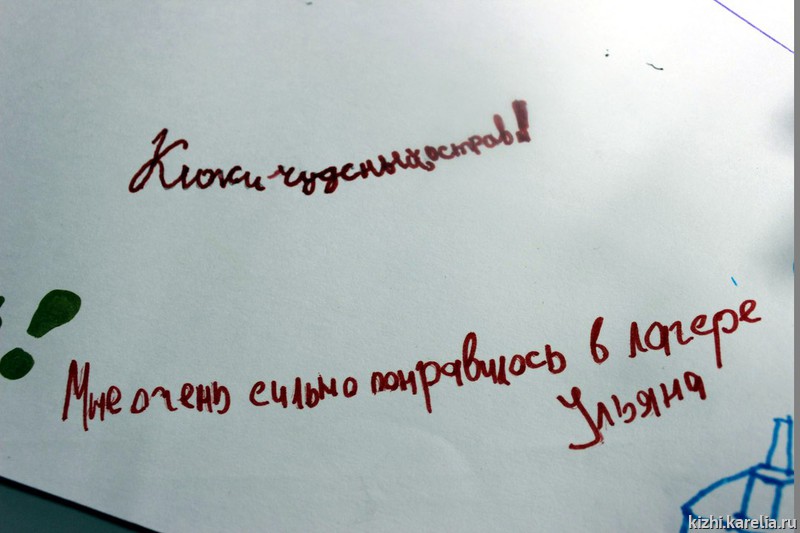 Кижи-чуденыйостров!
Мне очень сильно понравилось в лагере
Ульяна
kizhi.karelia.ru